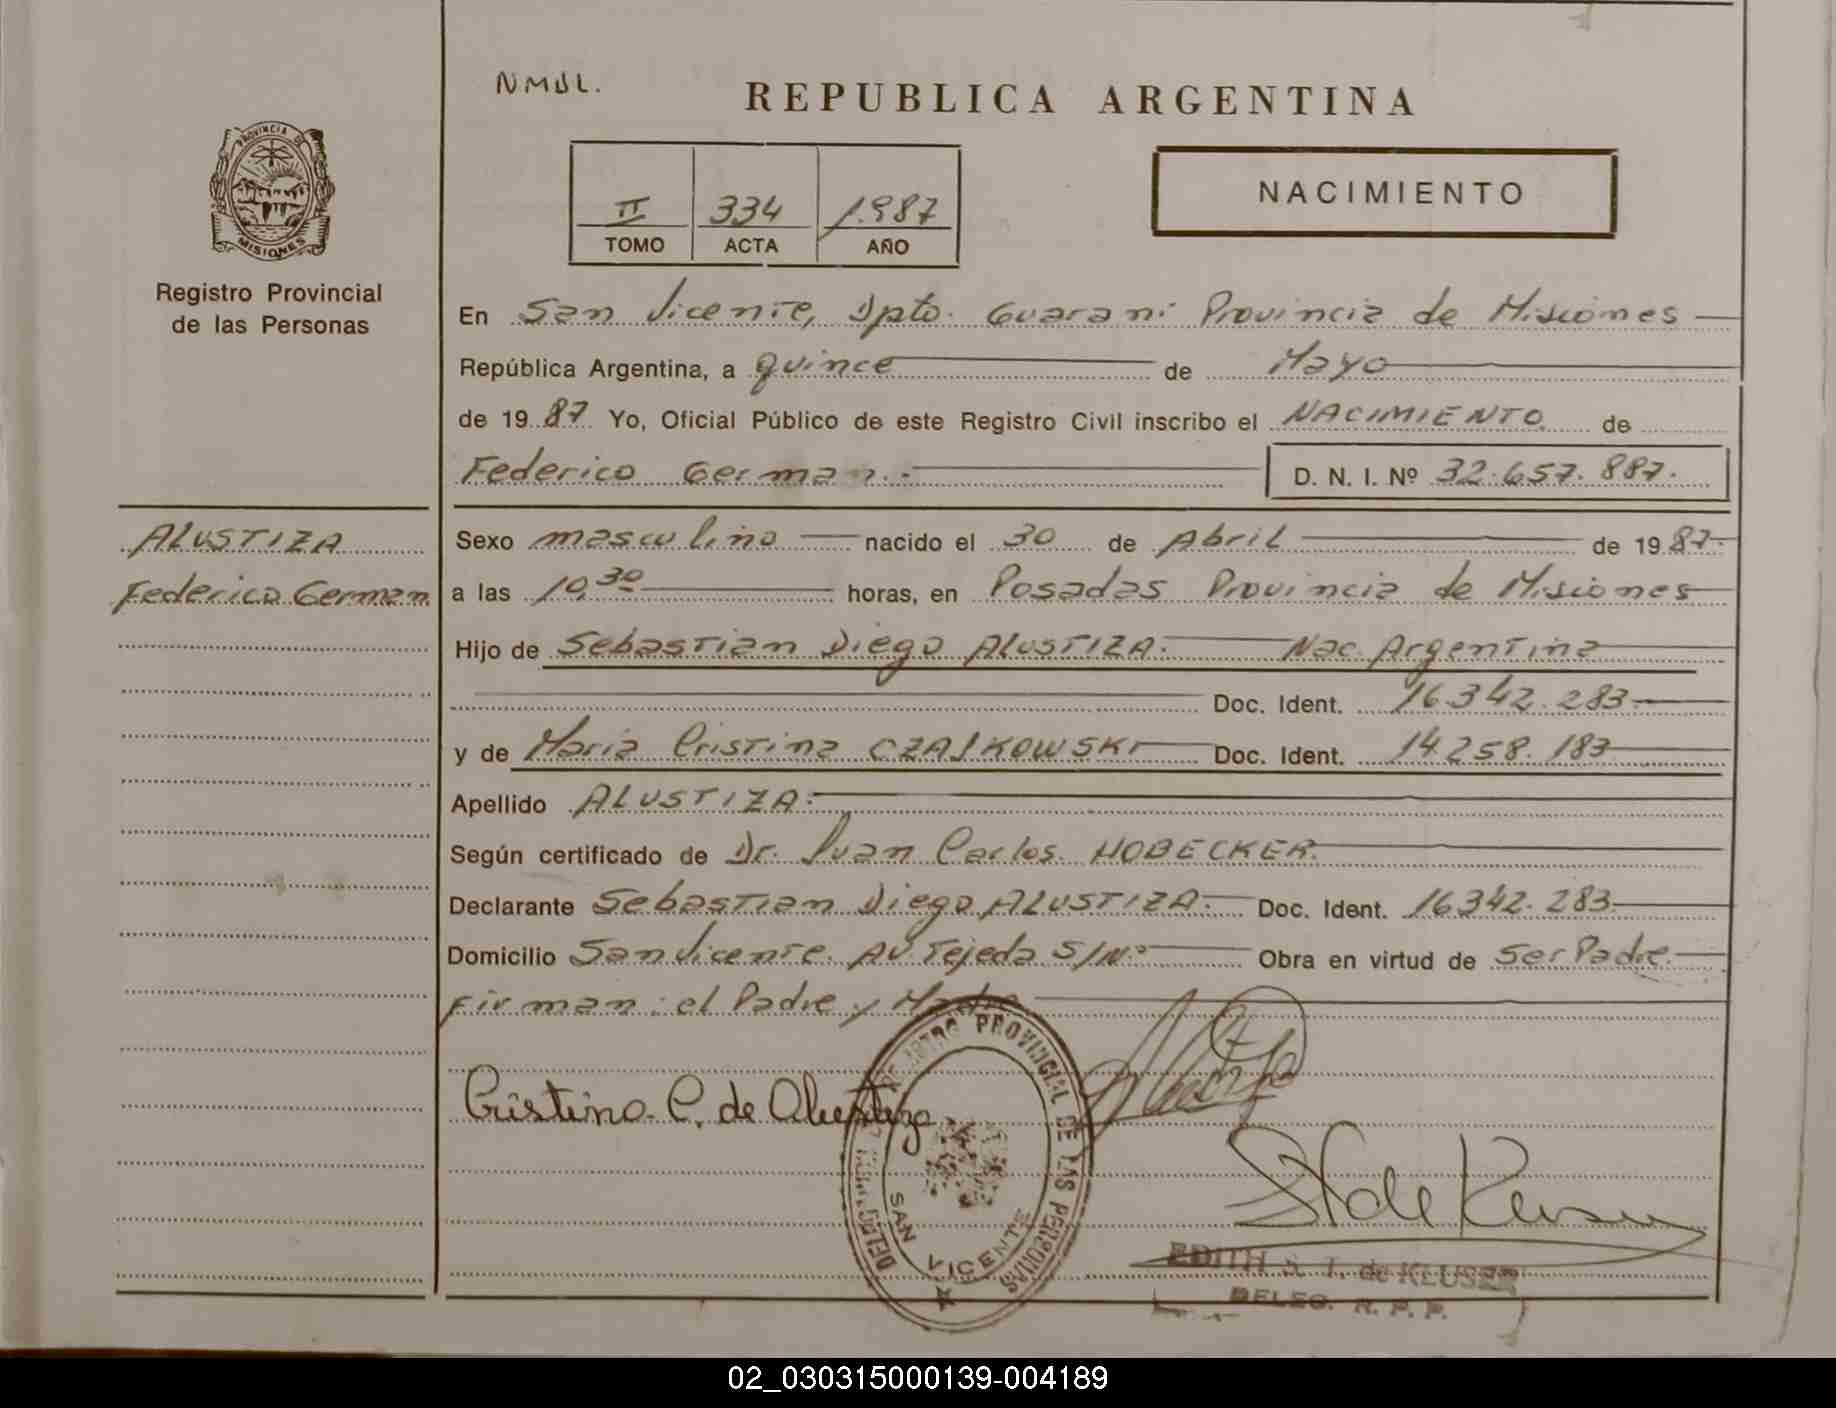 NMJL.
REPUBLICA ARGENTINA
PROVINCIA DE
MISIONES
Registro Provincial
de las Personas
II 334 1.987
TOMO ACTA AÑO
NACIMIENTO
En San Vicente, Dpto. Guarani Provincia de Misiones
República Argentina, a quince de Mayo
de 19 87 Yo, Oficial Público de este Registro Civil inscribo el NACIMIENTO de
Federico German.- D. N. I. Nº 32.657.887.
ALUSTIZA
Federico German
Sexo masculino nacido el 30 de Abril de 19 87.
a las 10,30 horas, en Posadas Provincia de Misiones
Hijo de Sebastian Diego ALUSTIZA. Nac. Argentina
Doc. Ident. 16.342.283
y de Maria Cristina CZAJKOWSKI Doc. Ident. 14.258.183
Apellido ALUSTIZA.
Según certificado de Dr. Juan Carlos HOBECKER.
Declarante Sebastian Diego ALUSTIZA. Doc. Ident. 16342.283
Domicilio San Vicente. AV. Tejeda S/Nº Obra en virtud de Ser Padre.
Firman: el Padre y Madre
Cristina C. de Alustiza
REGISTRO PROVINCIAL DE LAS PERSONAS
SAN VICENTE
EDITH S. T. de KLUSER
DELEG. R. P. P.
02_030315000139-004189